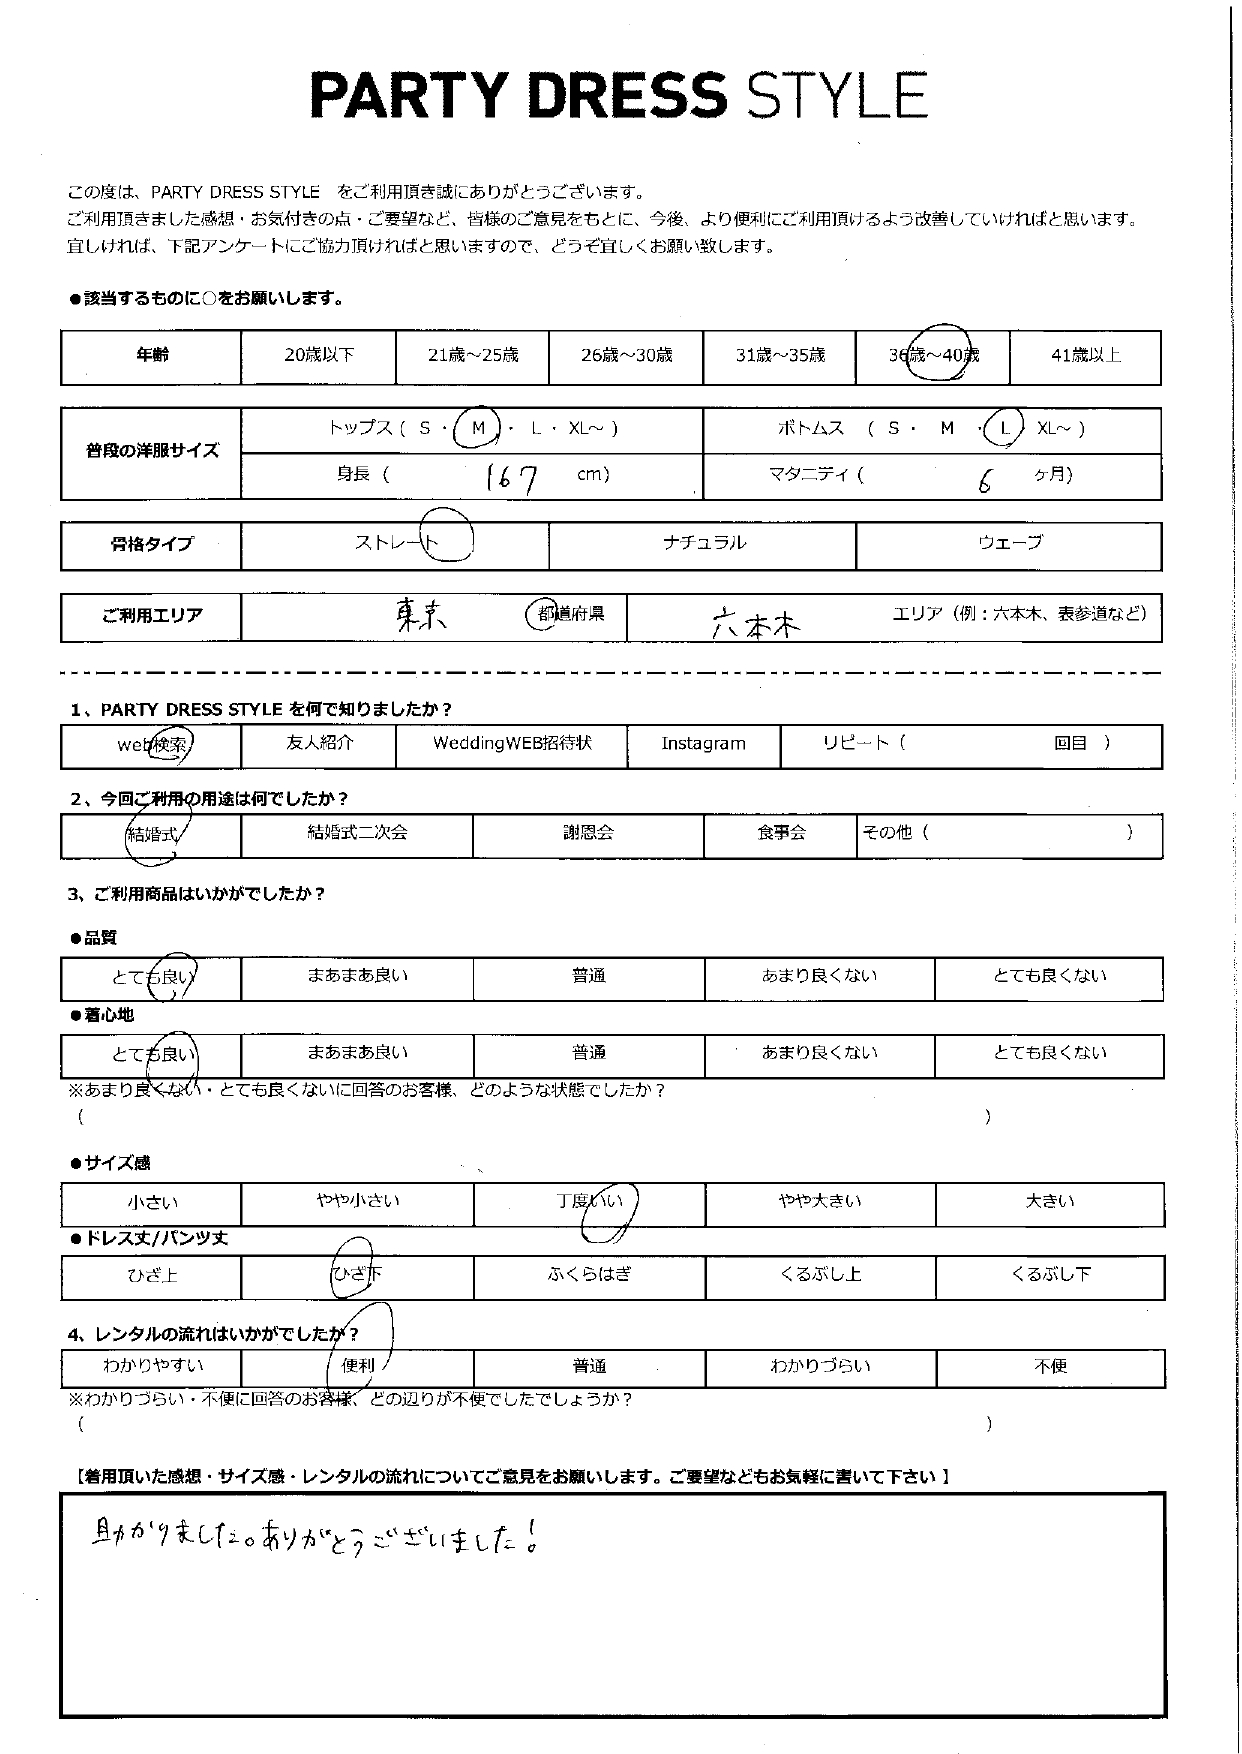 PARTY DRESS STYLE
この度は、PARTY DRESS STYLE をご利用頂き誠にありがとうございます。
ご利用頂きました感想・お気付きの点・ご要望など、皆様のご意見をもとに、今後、より便利にご利用頂けるよう改善していければと思います。
宜しければ、下記アンケートにご協力頂ければと思いますので、どうぞ宜しくお願い致します。
●該当するものに○をお願いします。
年齢 20歳以下 21歳～25歳 26歳～30歳 31歳～35歳 36歳～40歳 41歳以上
普段の洋服サイズ
トップス ( S ・ M ・ L ・ XL～ ) ボトムス ( S ・ M ・ L ・ XL～ )
身長 ( 167 cm) マタニティ ( 6 ヶ月)
骨格タイプ ストレート ナチュラル ウェーブ
ご利用エリア 東京 都道府県 六本木 エリア（例：六本木、表参道など）
1、PARTY DRESS STYLE を何で知りましたか？
web検索 友人紹介 WeddingWEB招待状 Instagram リピート ( 回目 )
2、今回ご利用の用途は何でしたか？
結婚式 結婚式二次会 謝恩会 食事会 その他 ( )
3、ご利用商品はいかがでしたか？
●品質
とても良い まあまあ良い 普通 あまり良くない とても良くない
●着心地
とても良い まあまあ良い 普通 あまり良くない とても良くない
※あまり良くない・とても良くないに回答のお客様、どのような状態でしたか？
( )
●サイズ感
小さい やや小さい 丁度いい やや大きい 大きい
●ドレス丈/パンツ丈
ひざ上 ひざ下 ふくらはぎ くるぶし上 くるぶし下
4、レンタルの流れはいかがでしたか？
わかりやすい 便利 普通 わかりづらい 不便
※わかりづらい・不便に回答のお客様、どの辺りが不便でしたでしょうか？
( )
【着用頂いた感想・サイズ感・レンタルの流れについてご意見をお願いします。ご要望などもお気軽に書いて下さい】
助かりました。ありがとうございました！